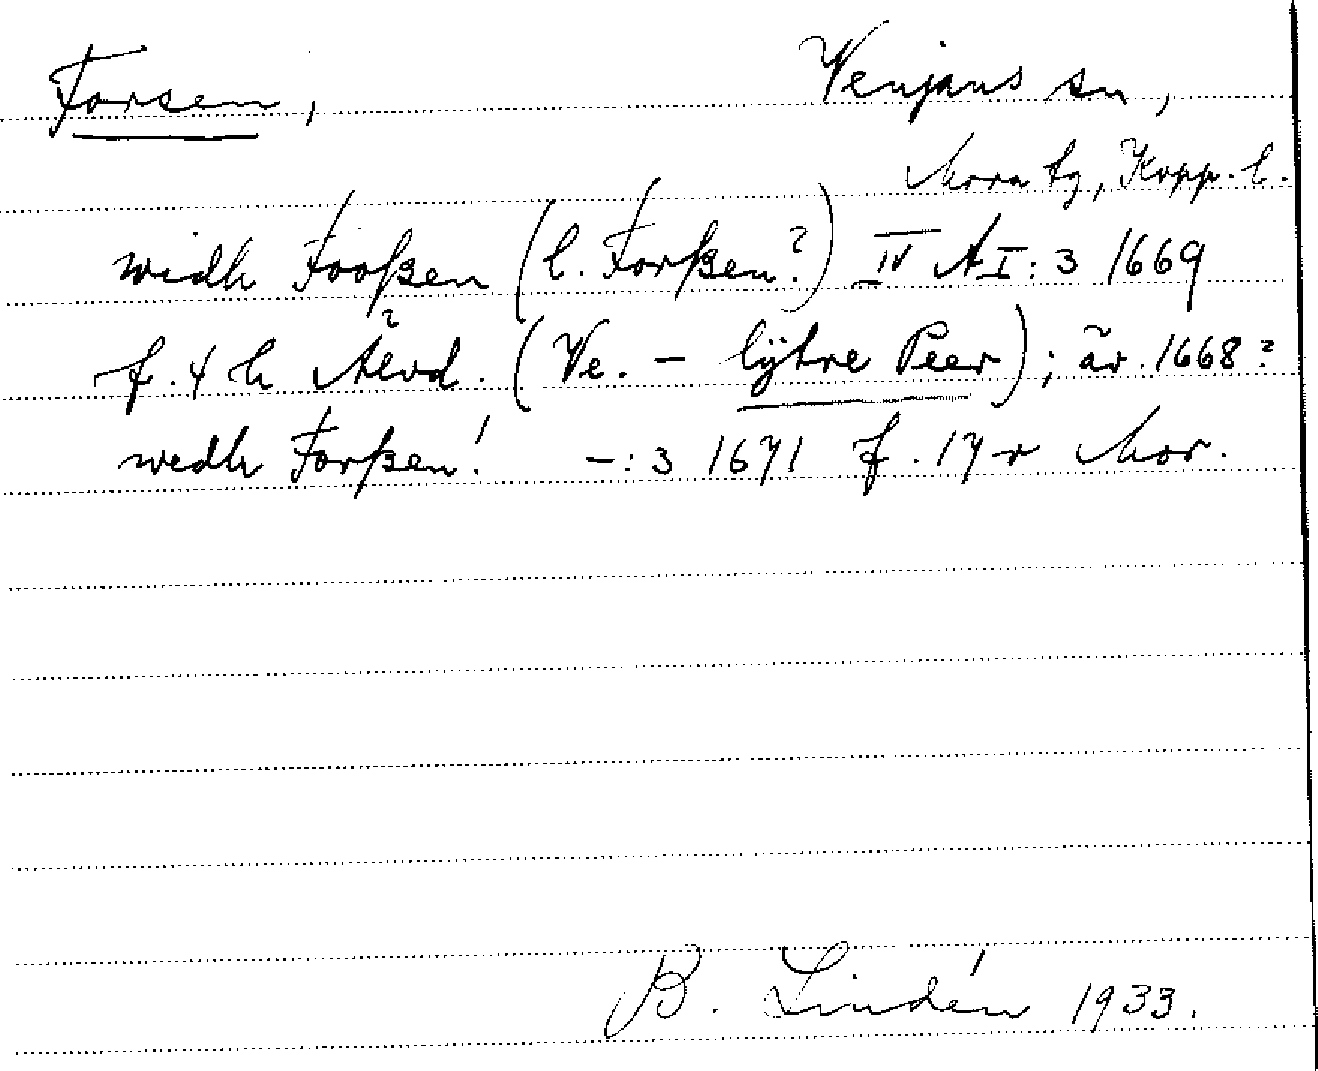 Forsen, Venjans sn,
Mora tg, Kopp. l.
widh Fooßen (l. Forßen?) IV AI:3 1669
f. 4 h Älvd. (Ve. – lÿtre Peer); är 1668?
wedh Forßen! –:3 1671 f. 17 r Mor.
B. Lindén 1933.